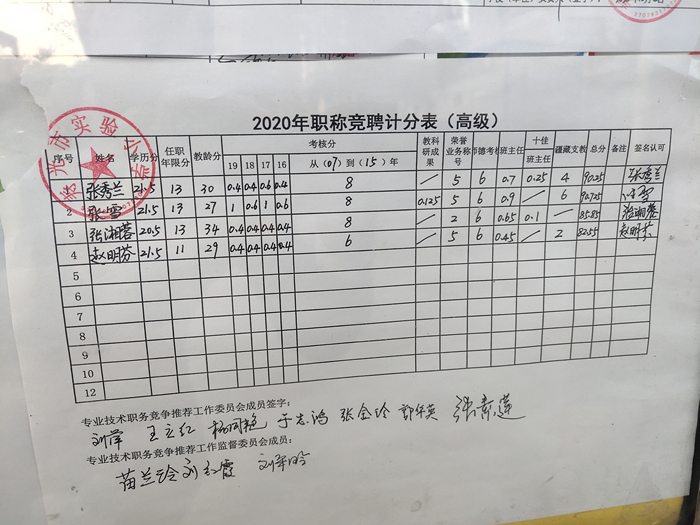 2020年职称竞聘计分表（高级）
序号 姓名 学历分 任职年限分 教龄分 考核分 教科研成果 荣誉业务称号 师德考核 班主任 十佳班主任 疆藏支教 总分 备注 签名认可
19 18 17 16 从(07)到(15)年
张秀兰 21.5 13 30 0.4 0.4 0.6 0.4 8 / 5 6 0.7 0.25 4 90.25 张秀兰
2 张雪 21.5 13 27 1 0.6 1 0.6 8 0.125 5 6 0.9 / 6 90.725 张雪
3 张湘蓉 20.5 13 34 0.4 0.4 0.4 0.4 8 / 2 6 0.65 0.1 / 85.85 张湘蓉
4 赵明芬 21.5 11 29 0.4 0.4 0.4 0.4 6 / 5 6 0.45 / 2 82.55 赵明芬
5
6
7
8
9
10
11
12
专业技术职务竞争推荐工作委员会成员签字：
刘萍 王立红 杨同艳 于志鸿 张金玲 郭华英 张素莲
专业技术职务竞争推荐工作监督委员会成员：
苗兰玲 刘红霞
市实验小学